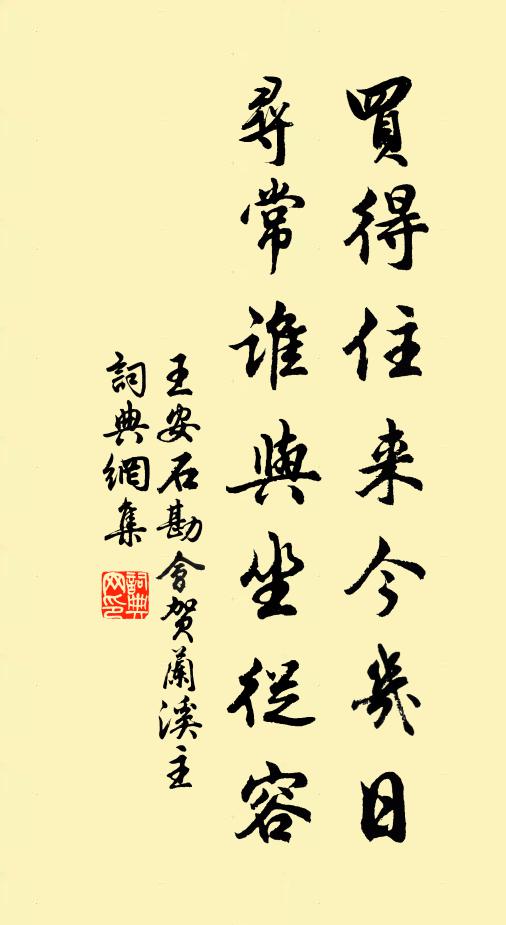 買得住来今幾日
尋常誰與坐從容
王安石勘會賀蘭溪主
詞典網集
詞典网印